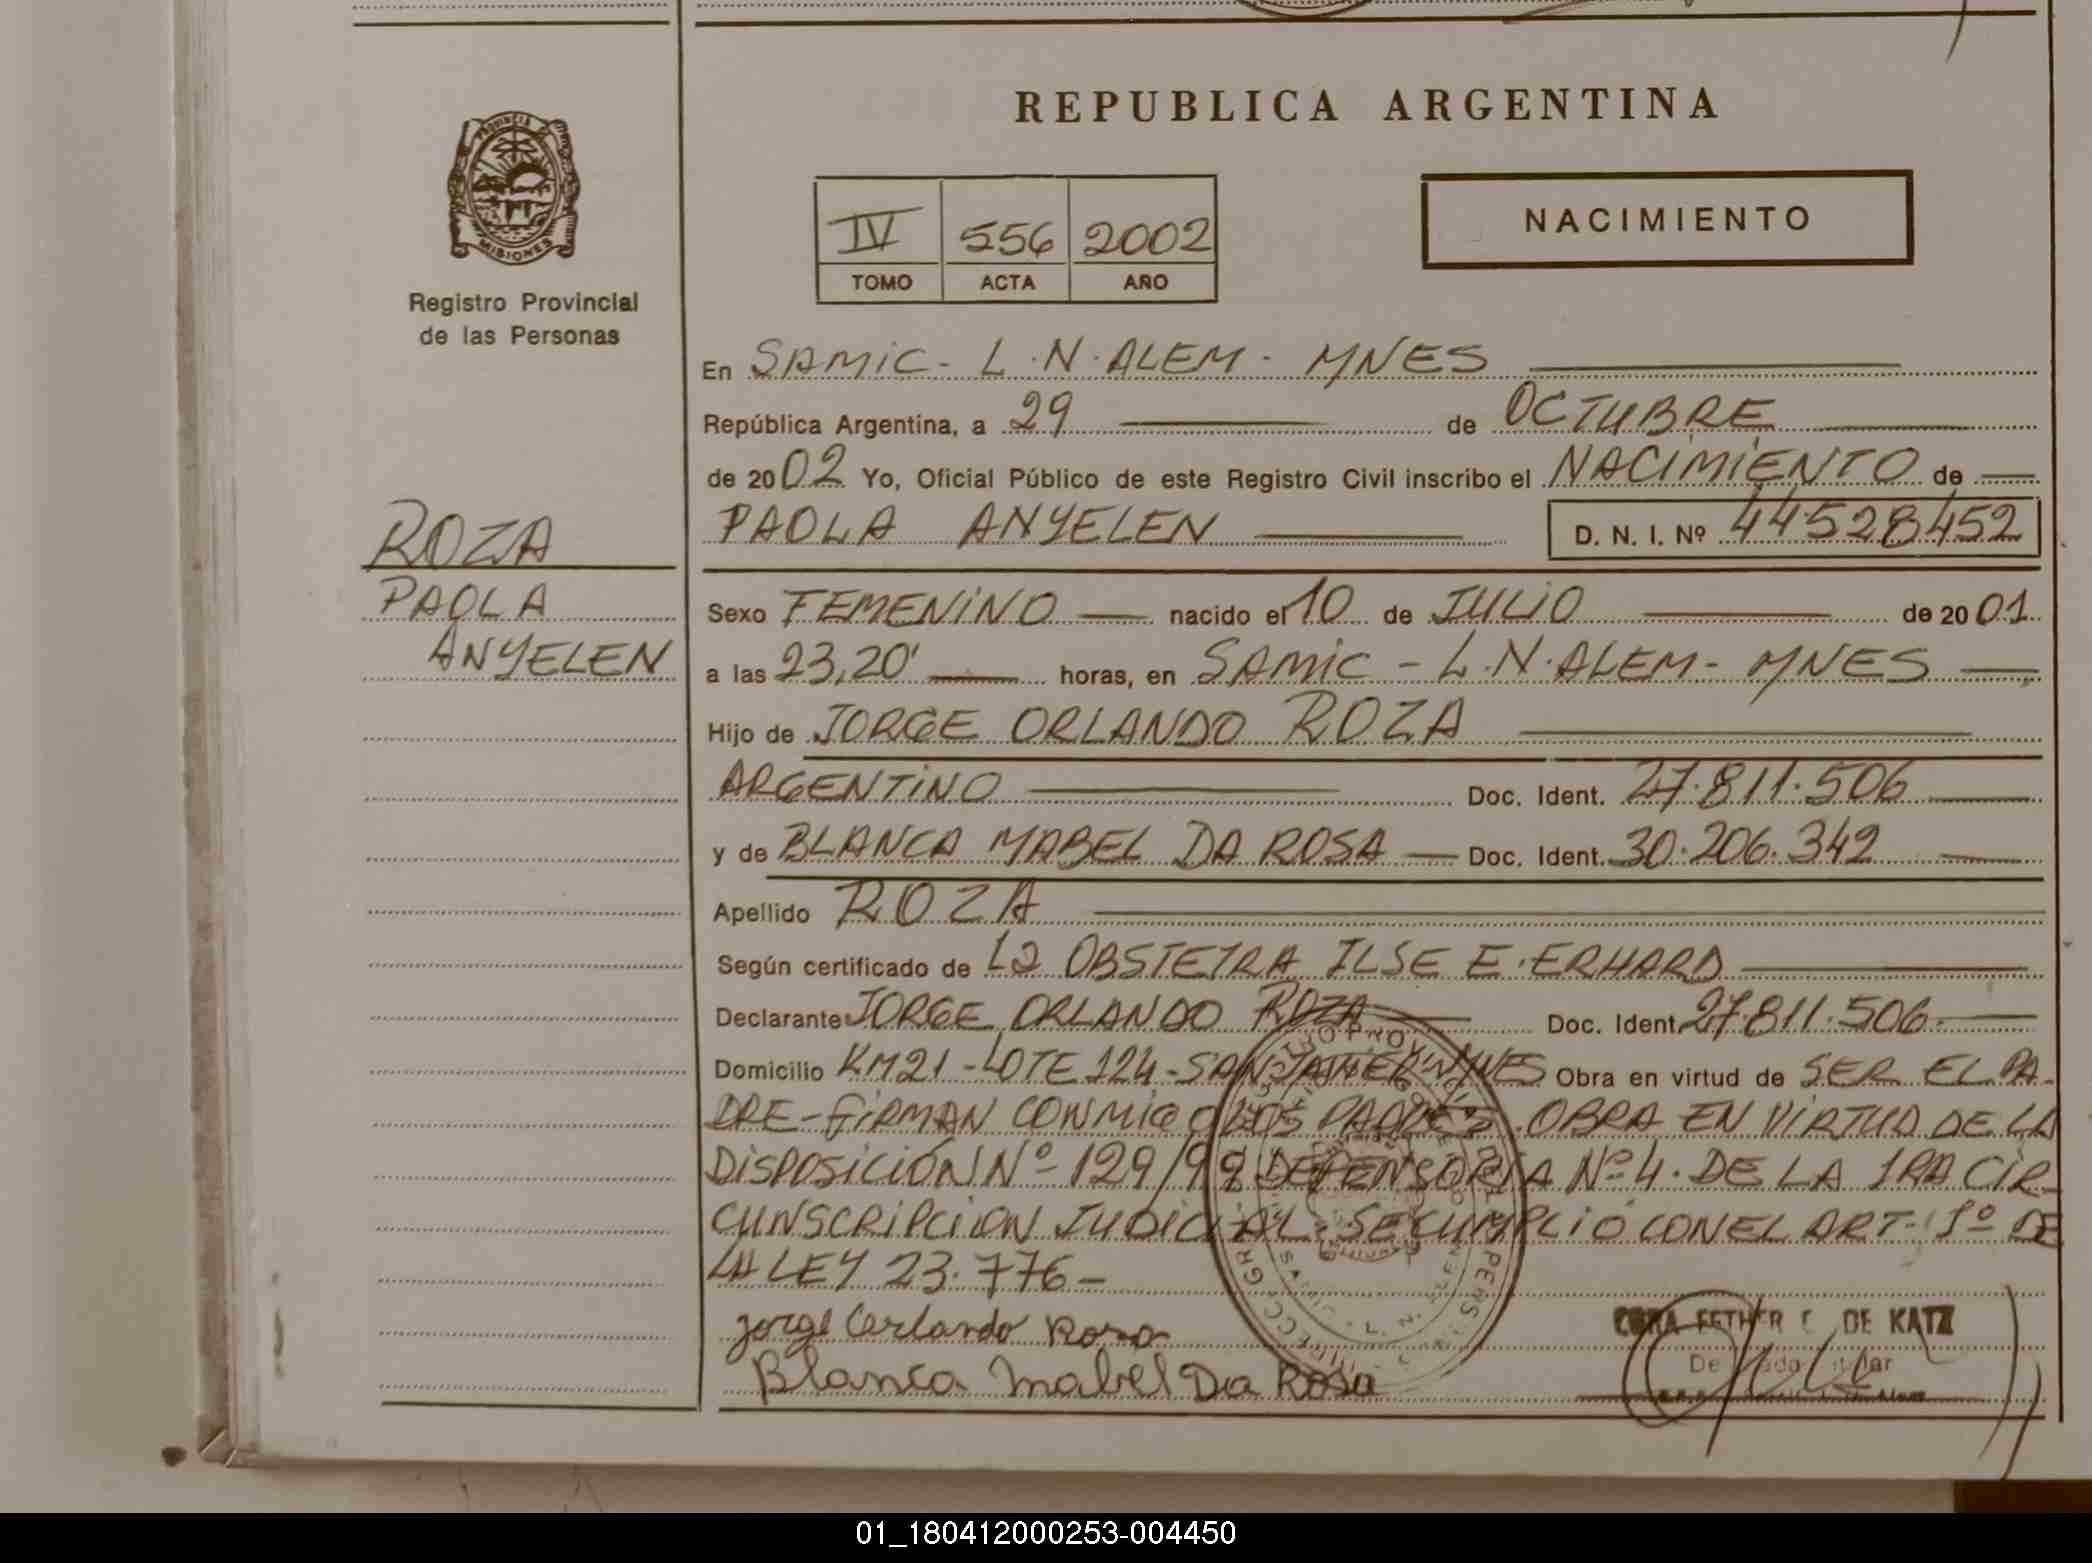 REPUBLICA ARGENTINA
PROVINCIA DE
MISIONES
Registro Provincial
de las Personas
NACIMIENTO
IV 556 2002
TOMO ACTA AÑO
En SAMIC - L.N. ALEM - MNES
República Argentina, a 29 de OCTUBRE
de 2002 Yo, Oficial Público de este Registro Civil inscribo el NACIMIENTO de
PAOLA ANYELEN D. N. I. Nº 44528452
ROZA
PAOLA
ANYELEN
Sexo FEMENINO nacido el 10 de JULIO de 2001
a las 23,20' horas, en SAMIC - L.N. ALEM - MNES
Hijo de JORGE ORLANDO ROZA
ARGENTINO Doc. Ident. 27.811.506
y de BLANCA MABEL DA ROSA Doc. Ident. 30.206.342
Apellido ROZA
Según certificado de La OBSTETRA ILSE E. ERHARD
Declarante JORGE ORLANDO ROZA Doc. Ident. 27.811.506
Domicilio KM21 - LOTE 124 - SAN JAVIER - MNES Obra en virtud de SER EL PA-
DRE - FIRMAN CONMIGO LOS PADRES. OBRA EN VIRTUD DE LA
DISPOSICIÓN Nº 129/99 DEFENSORÍA Nº 4. DE LA 1RA CIR-
CUNSCRIPCION JUDICIAL. SE CUMPLIÓ CON EL ART. 1º DE
LA LEY 23.776 -
Jorge Orlando Roza
Blanca Mabel Da Rosa
ESTHER DE KATZ
01_180412000253-004450